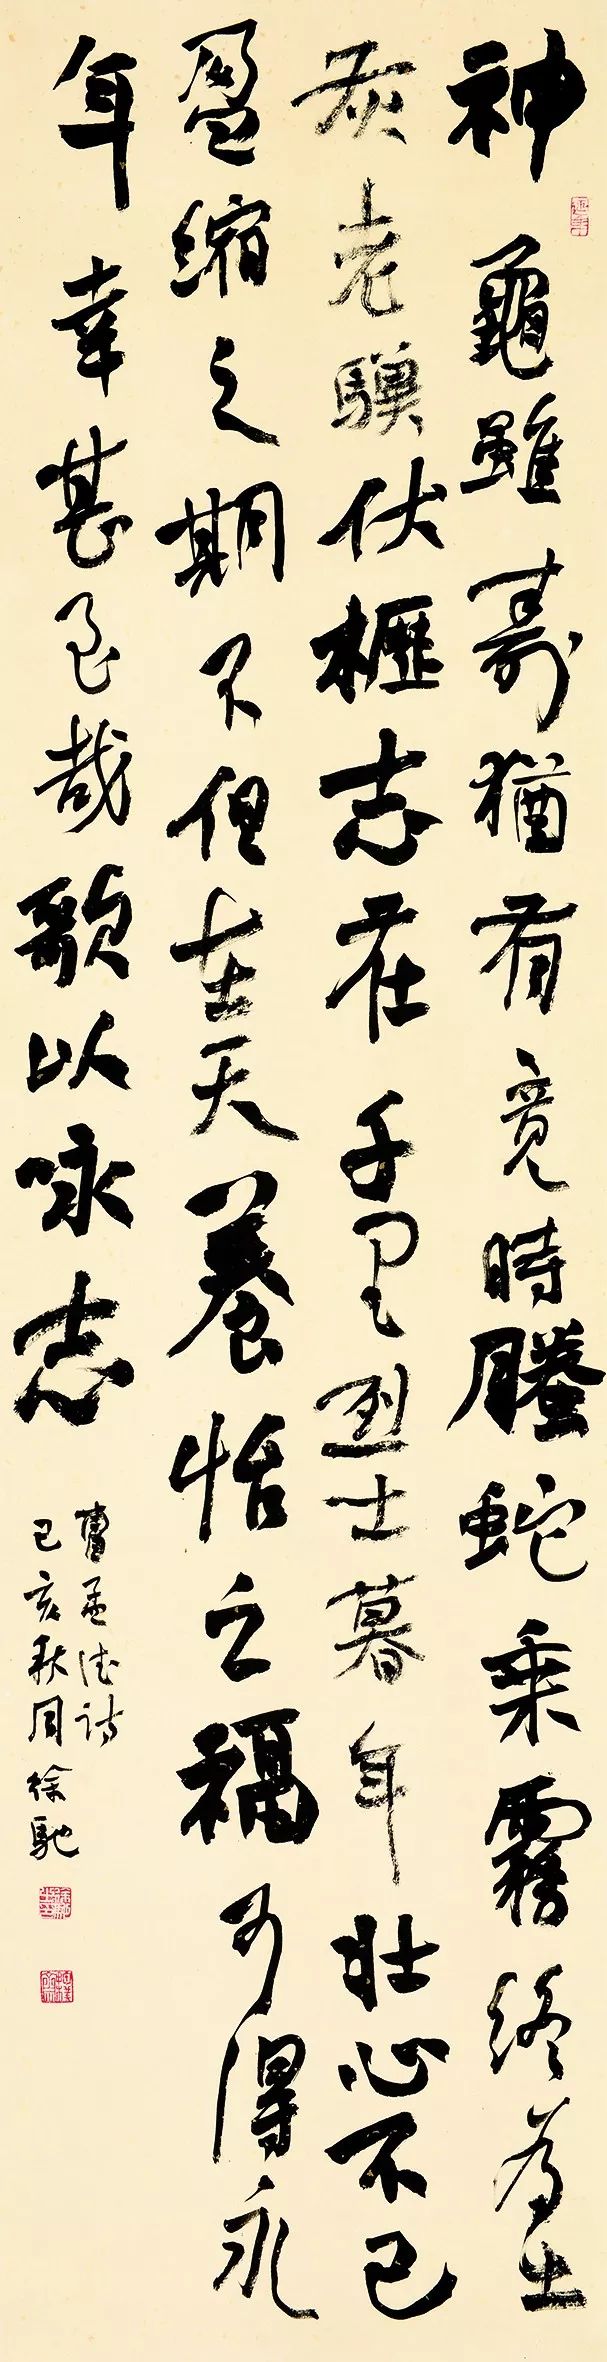 神龜雖壽猶有竟時騰蛇乘霧終為土
灰老驥伏櫪志在千里烈士暮年壯心不已
盈縮之期不但在天養怡之福可得永
年幸甚至哉歌以咏志
曹孟德詩
己亥秋月徐馳